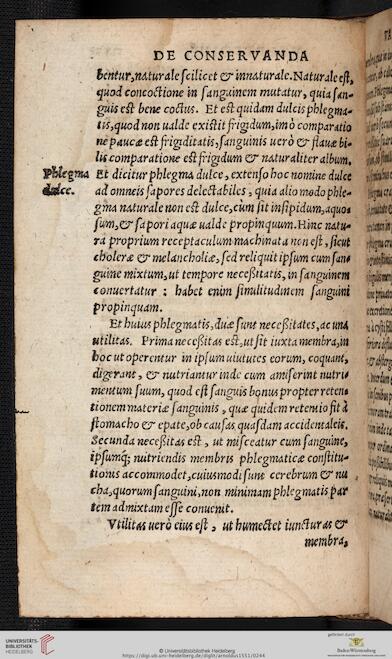 DE CONSERVANDA
bentur, naturale scilicet & innaturale. Naturale est,
quod concoctione in sanguinem mutatur, quia san-
guis est bene coctus. Et est quidam dulcis phlegma-
tis, quod non ualde existit frigidum, imò comparatio
ne paucæ est frigiditatis, sanguinis uerò & flauæ bi-
lis comparatione est frigidum & naturaliter album.
Phlegma dulce.
Et dicitur phlegma dulce, extenso hoc nomine dulce
ad omneis sapores delectabiles, quia alio modo phle-
gma naturale non est dulce, cùm sit insipidum, aquo
sum, & sapori aquæ ualde propinquum. Hinc natu-
ra proprium receptaculum machinata non est, sicut
choleræ & melancholiæ, sed reliquit ipsum cum san-
guine mixtum, ut tempore necessitatis, in sanguinem
conuertatur : habet enim similitudinem sanguini
propinquam.
Et huius phlegmatis, duæ sunt necessitates, ac una
utilitas. Prima necessitas est, ut sit iuxta membra, in
hoc ut operentur in ipsum uirtutes eorum, coquant,
digerant, & nutriantur inde cum amiserint nutri-
mentum suum, quod est sanguis bonus propter reten-
tionem materiæ sanguinis, quæ quidem retentio fit à
stomacho & epate, ob causas quasdam accidentaleis.
Secunda necessitas est, ut misceatur cum sanguine,
ipsumq; nutriendis membris phlegmaticæ constitu-
tionis accommodet, cuiusmodi sunt cerebrum & nu
cha, quorum sanguini, non minimam phlegmatis par
tem admixtam esse conuenit.
Vtilitas uerò eius est, ut humectet iuncturas &
membra,
UNIVERSITÄTS-
BIBLIOTHEK
HEIDELBERG
© Universitätsbibliothek Heidelberg
https://digi.ub.uni-heidelberg.de/diglit/arnoldus1551/0244
gefördert durch
Baden-Württemberg